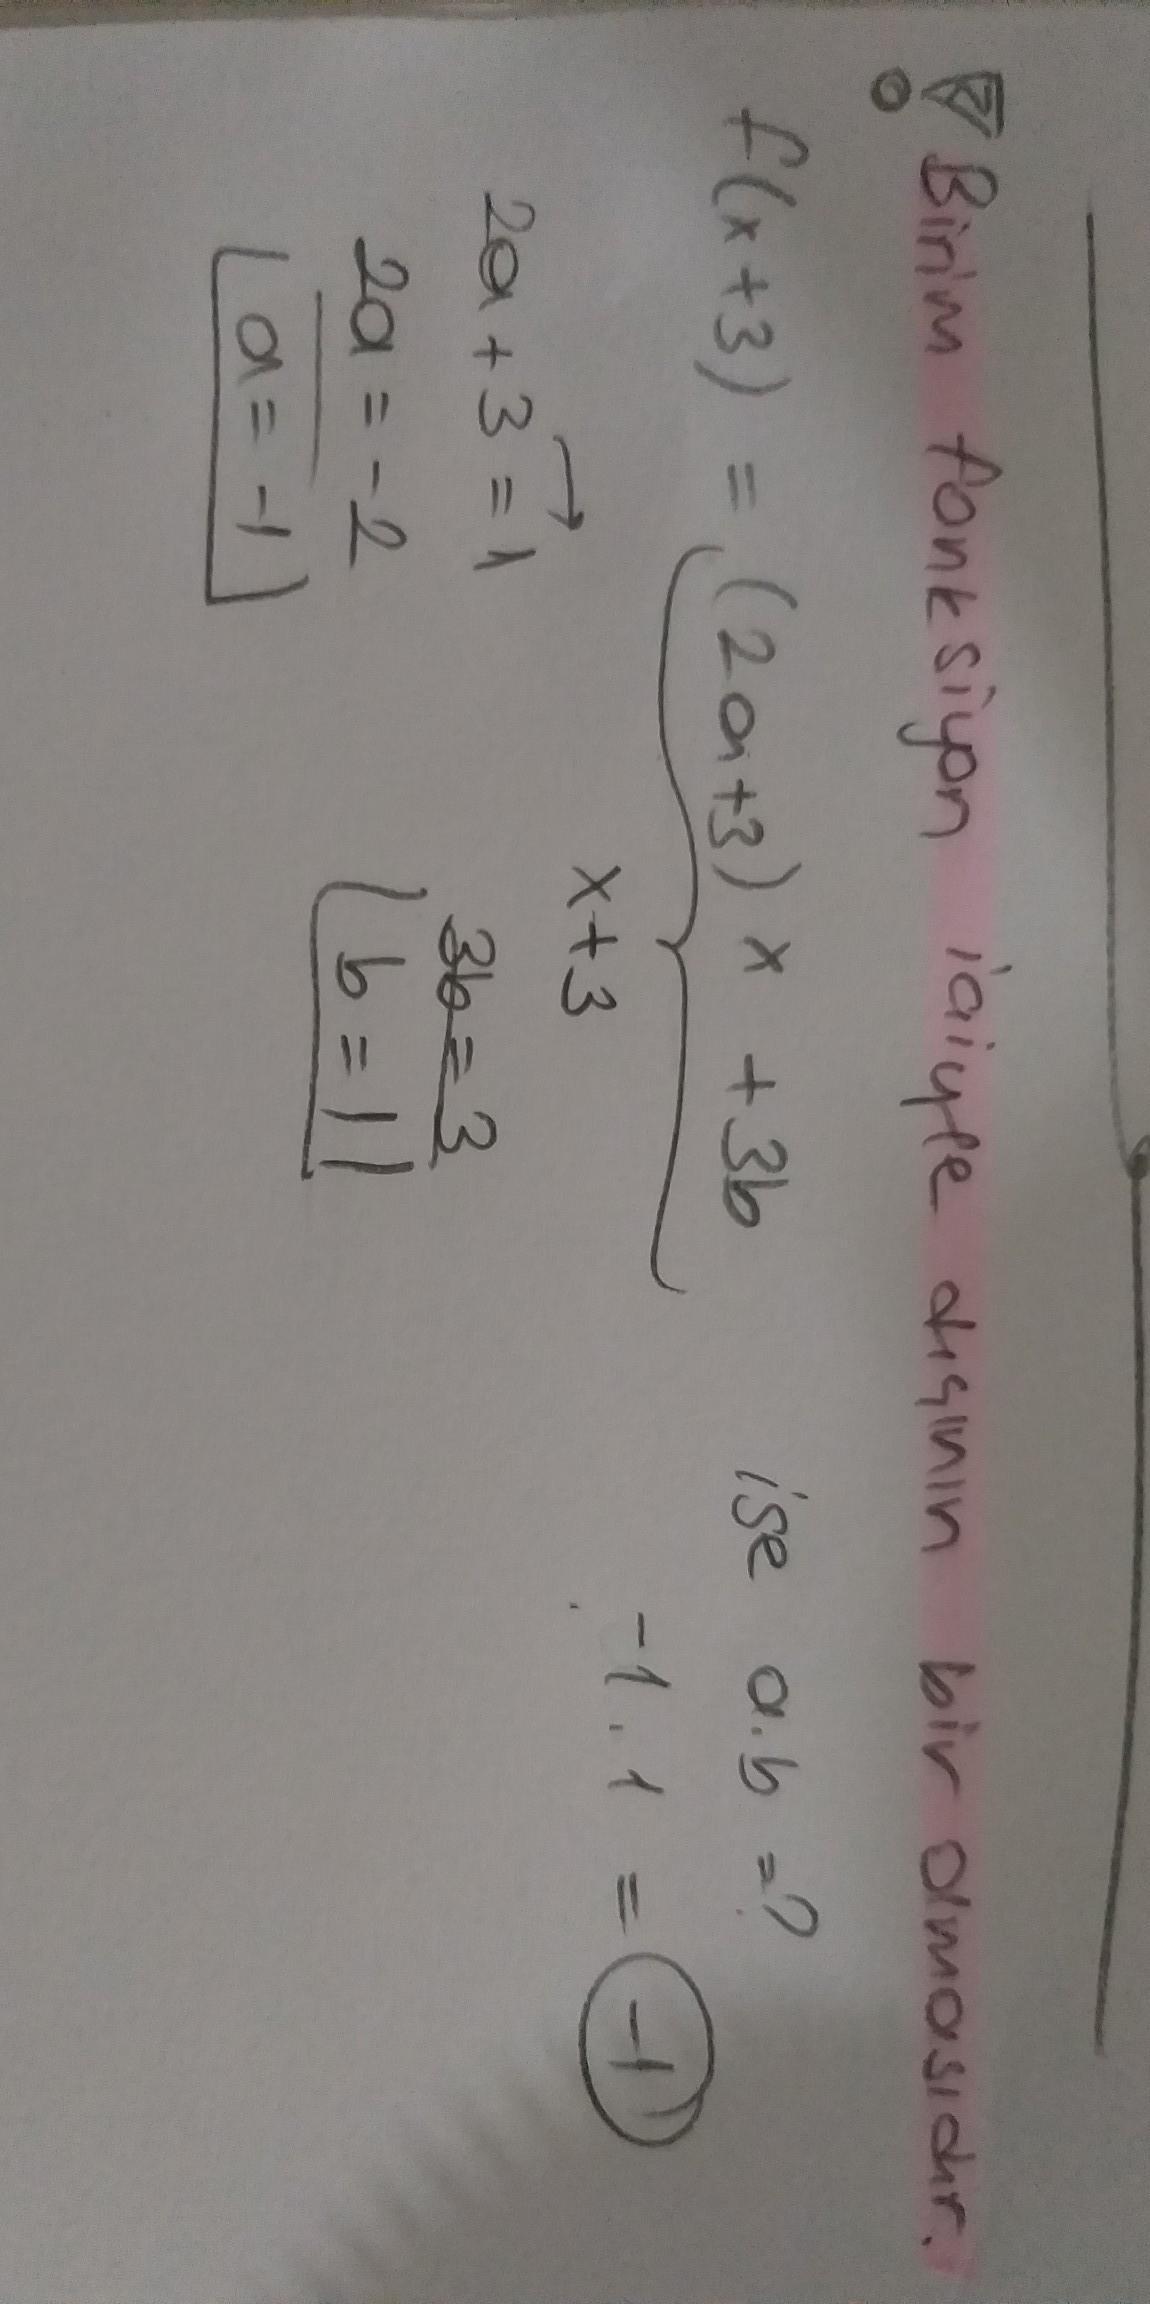 Birim fonksiyon içiyle dışının bir olmasıdır.
f(x+3) = (2a+3)x + 3b ise a.b=?
x+3 -1.1 = -1
2a+3=1 3b=3
2a=-2 b=1
a=-1